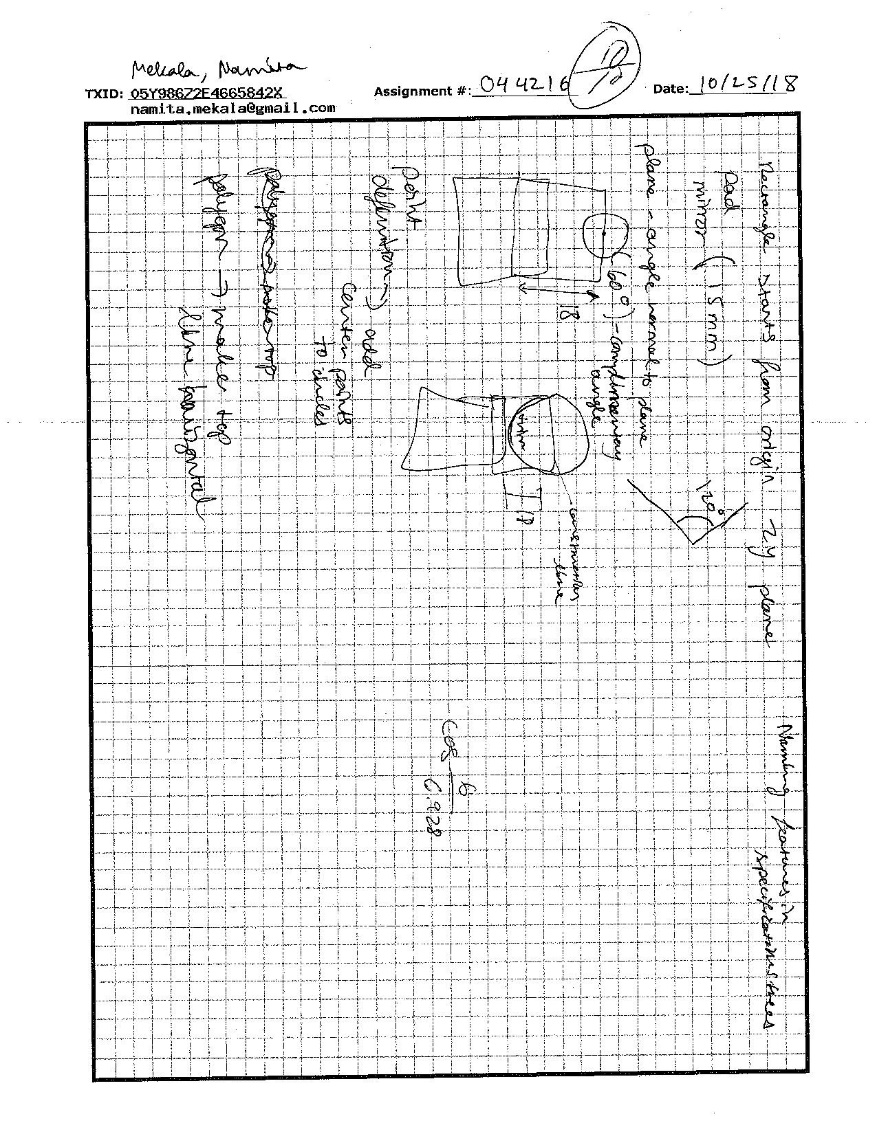 Mekala, Namita
TXID: 05Y98672E4665842X
namita.mekala@gmail.com
Assignment #: 044216
10/10
Date: 10/25/18
Rectangle starts from origin ZY plane
Pad
mirror (15mm)
plane - angle normal to plane
(60°) - complimentary
angle
120°
18
18
line
point
definition → add
center points
to circles
polygon → make top
line horizontal
cos 6
6.928
Naming features in
specifications trees